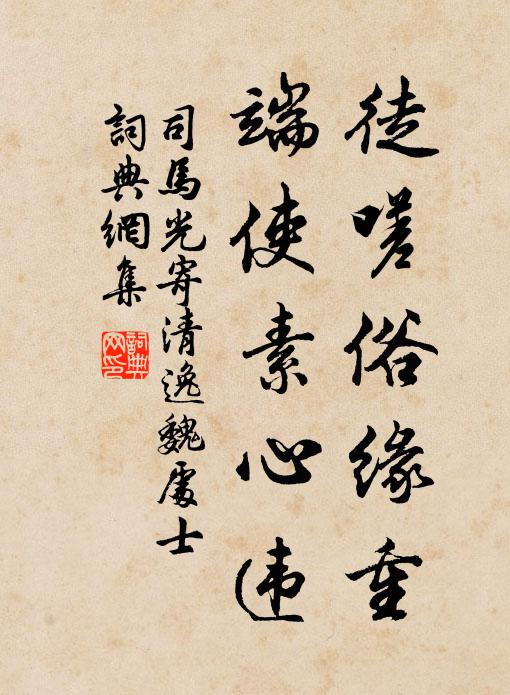 徒嗟俗缘重
端使素心违
司馬光寄清逸魏處士
詞典網集
詞典网印